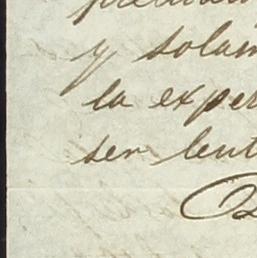 y solam
la exper
ser lent